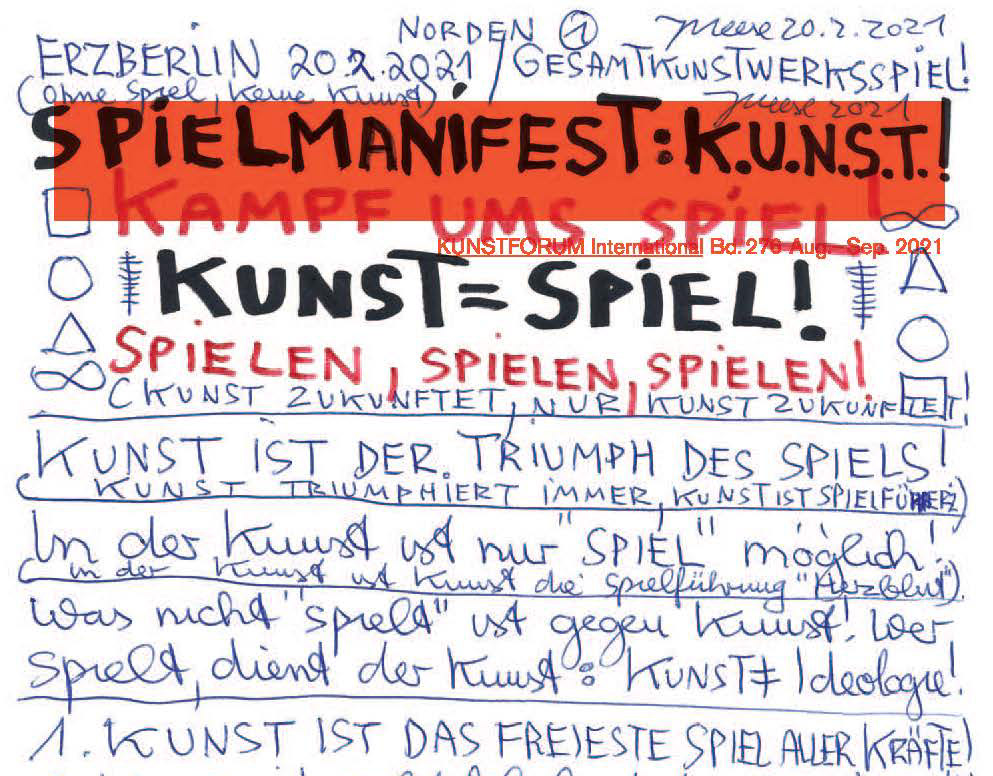 NORDEN ① Meese 20.2.2021
ERZBERLIN 20.2.2021 / GESAMTKUNSTWERKSSPIEL!
(ohne Spiel, keine Kunst) Meese 2021
SPIELMANIFEST: K.U.N.S.T.!
KAMPF UMS SPIEL!
KUNSTFORUM International Bd. 276 Aug.–Sep. 2021
KUNST = SPIEL!
SPIELEN, SPIELEN, SPIELEN!
(KUNST ZUKUNFTET, NUR KUNST ZUKUNFTET!
KUNST IST DER TRIUMPH DES SPIELS!
(KUNST TRIUMPHIERT IMMER, KUNST IST SPIELFÜHRERZ)
In der Kunst ist nur "SPIEL" möglich!
(in der Kunst ist Kunst die Spielführung "Herzblut").
Was nicht "spielt" ist gegen Kunst! Wer
Spielt, dient der Kunst: KUNST ≠ Ideologie!
1. KUNST IST DAS FREIESTE SPIEL ALLER KRÄFTE!